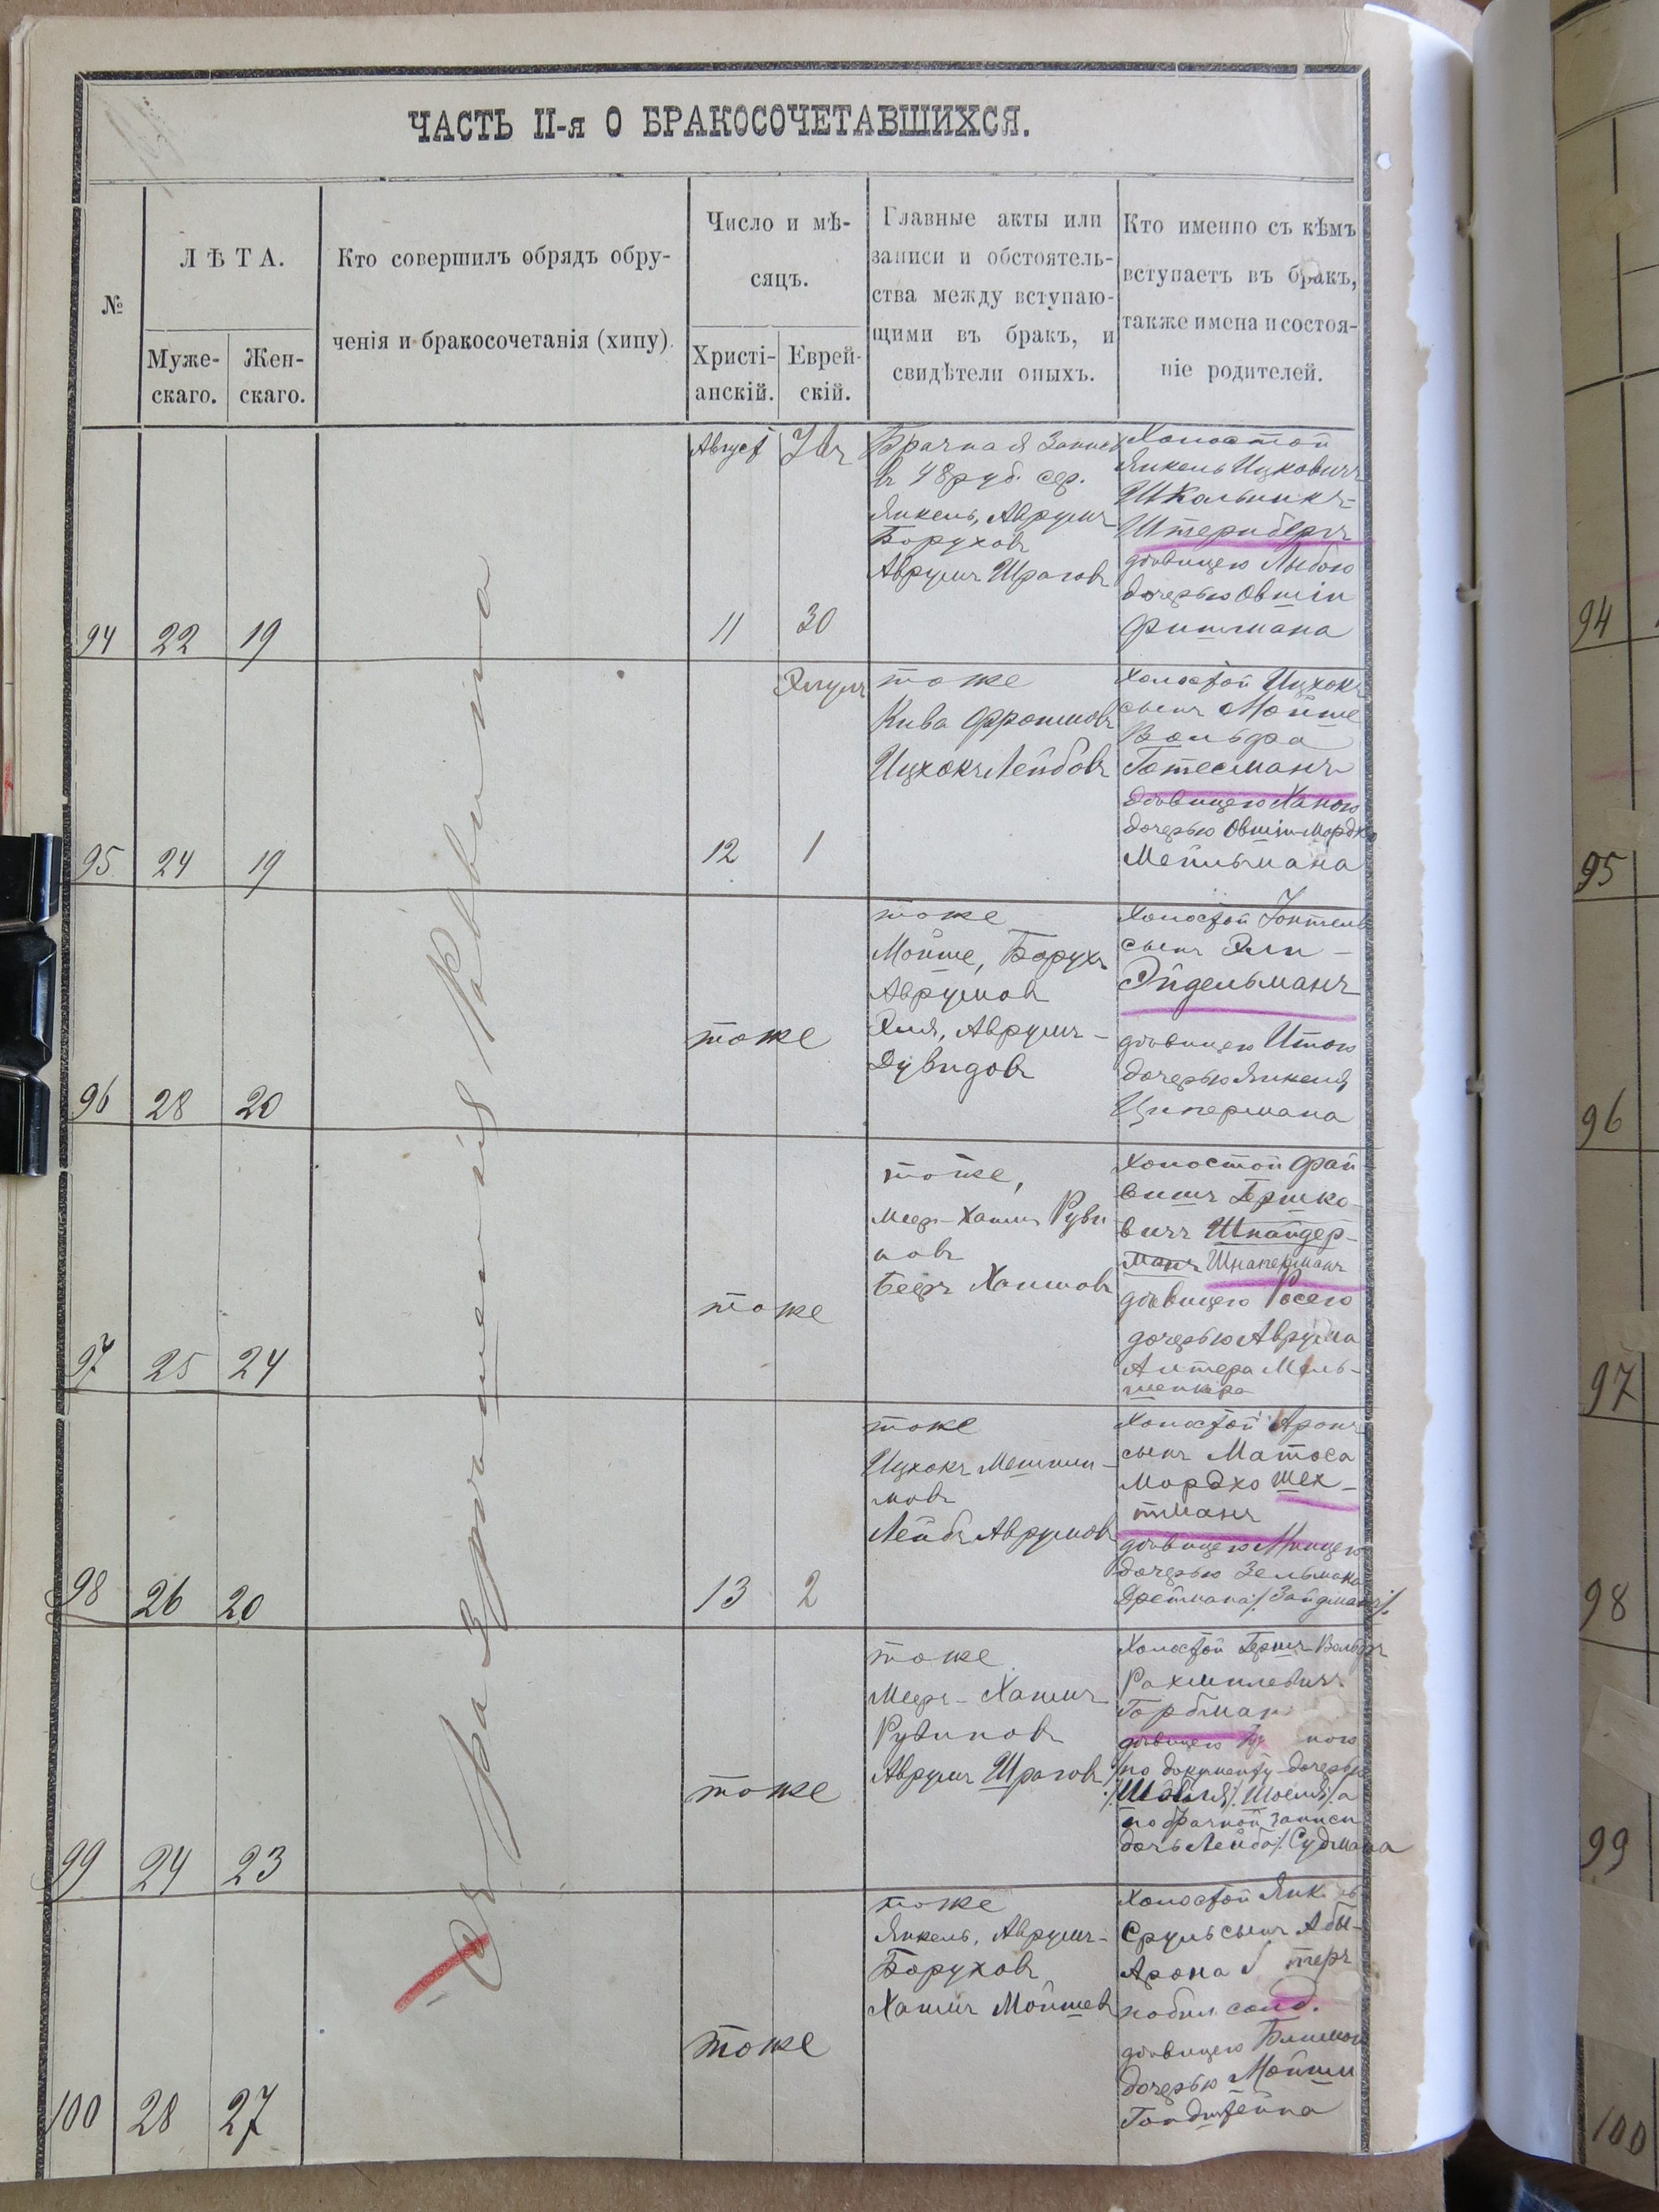 ЧАСТЬ II-я О БРАКОСОЧЕТАВШИХСЯ.
№
ЛѢТА.
Муже-
скаго.
Жен-
скаго.
Кто совершилъ обрядъ обру-
ченія и бракосочетанія (хипу).
Число и мѣ-
сяцъ.
Христі-
анскій.
Еврей-
скій.
Главные акты или
записи и обстоятель-
ства между вступаю-
щими въ бракъ, и
свидѣтели оныхъ.
Кто именно съ кѣмъ
вступаетъ въ бракъ,
также имена и состоя-
ніе родителей.
Съ разрѣшенія Раввина
94
22
19
Август
11
30
Брачная Запись
въ 48 руб. сер.
Янкель, Аврумъ
Боруховъ
Аврумъ Шраговъ
Холостой
Янкель Ицковичъ
Школьникъ-
Штернбергъ
дѣвицею
дочерью Овшіи
Фишмана
95
24
19
12
Элулъ
1
тоже
Кива Фроимовъ
Ицхокъ Лейбовъ
Холостой Ицхокъ
сынъ Мойше
Вольфа
Готесманъ
дѣвицею Ханою
дочерью Овшіи-Мордко
Мейльмана
96
28
20
тоже
тоже
Мойше, Борухъ
Аврумовъ
Эля, Аврумъ-
Дувидовъ
Холостой Іонтель
сынъ Эли-
Эйдельманъ
дѣвицею Итою
дочерью Янкеля
Ципермана
97
25
24
тоже
тоже,
Меер-Хаимъ Руви
новъ
Беръ Хаимовъ
Холостой Фай-
вишъ Гершко-
вичъ Шнайдер-
манъ
дѣвицею Росею
дочерью Аврума
Алтера
98
26
20
13
2
тоже
Ицхокъ
мовъ
Лейбъ Аврумовъ
Холостой Аронъ
сынъ Матоса
Мордхо Шех-
тманъ
дѣвицею
дочерью Зельмана
/Зайдмана/.
99
24
23
тоже
тоже
Меер-Хаимъ
Рувиновъ
Аврумъ Шраговъ
Холостой Гершъ-Вольфъ
Рахмилевичъ
Горбман
дѣвицею
/по документу дочерью
а
по брачной записи
дочь Лейба/. Судмана
100
28
27
тоже
тоже
Янкель, Аврумъ-
Боруховъ
Хаимъ Мойшевъ
Холостой
Сруль сынъ Абы-
Арона
солд.
дѣвицею Блимою
дочерью Мойши
Голдштейна
94
95
96
97
98
99
100